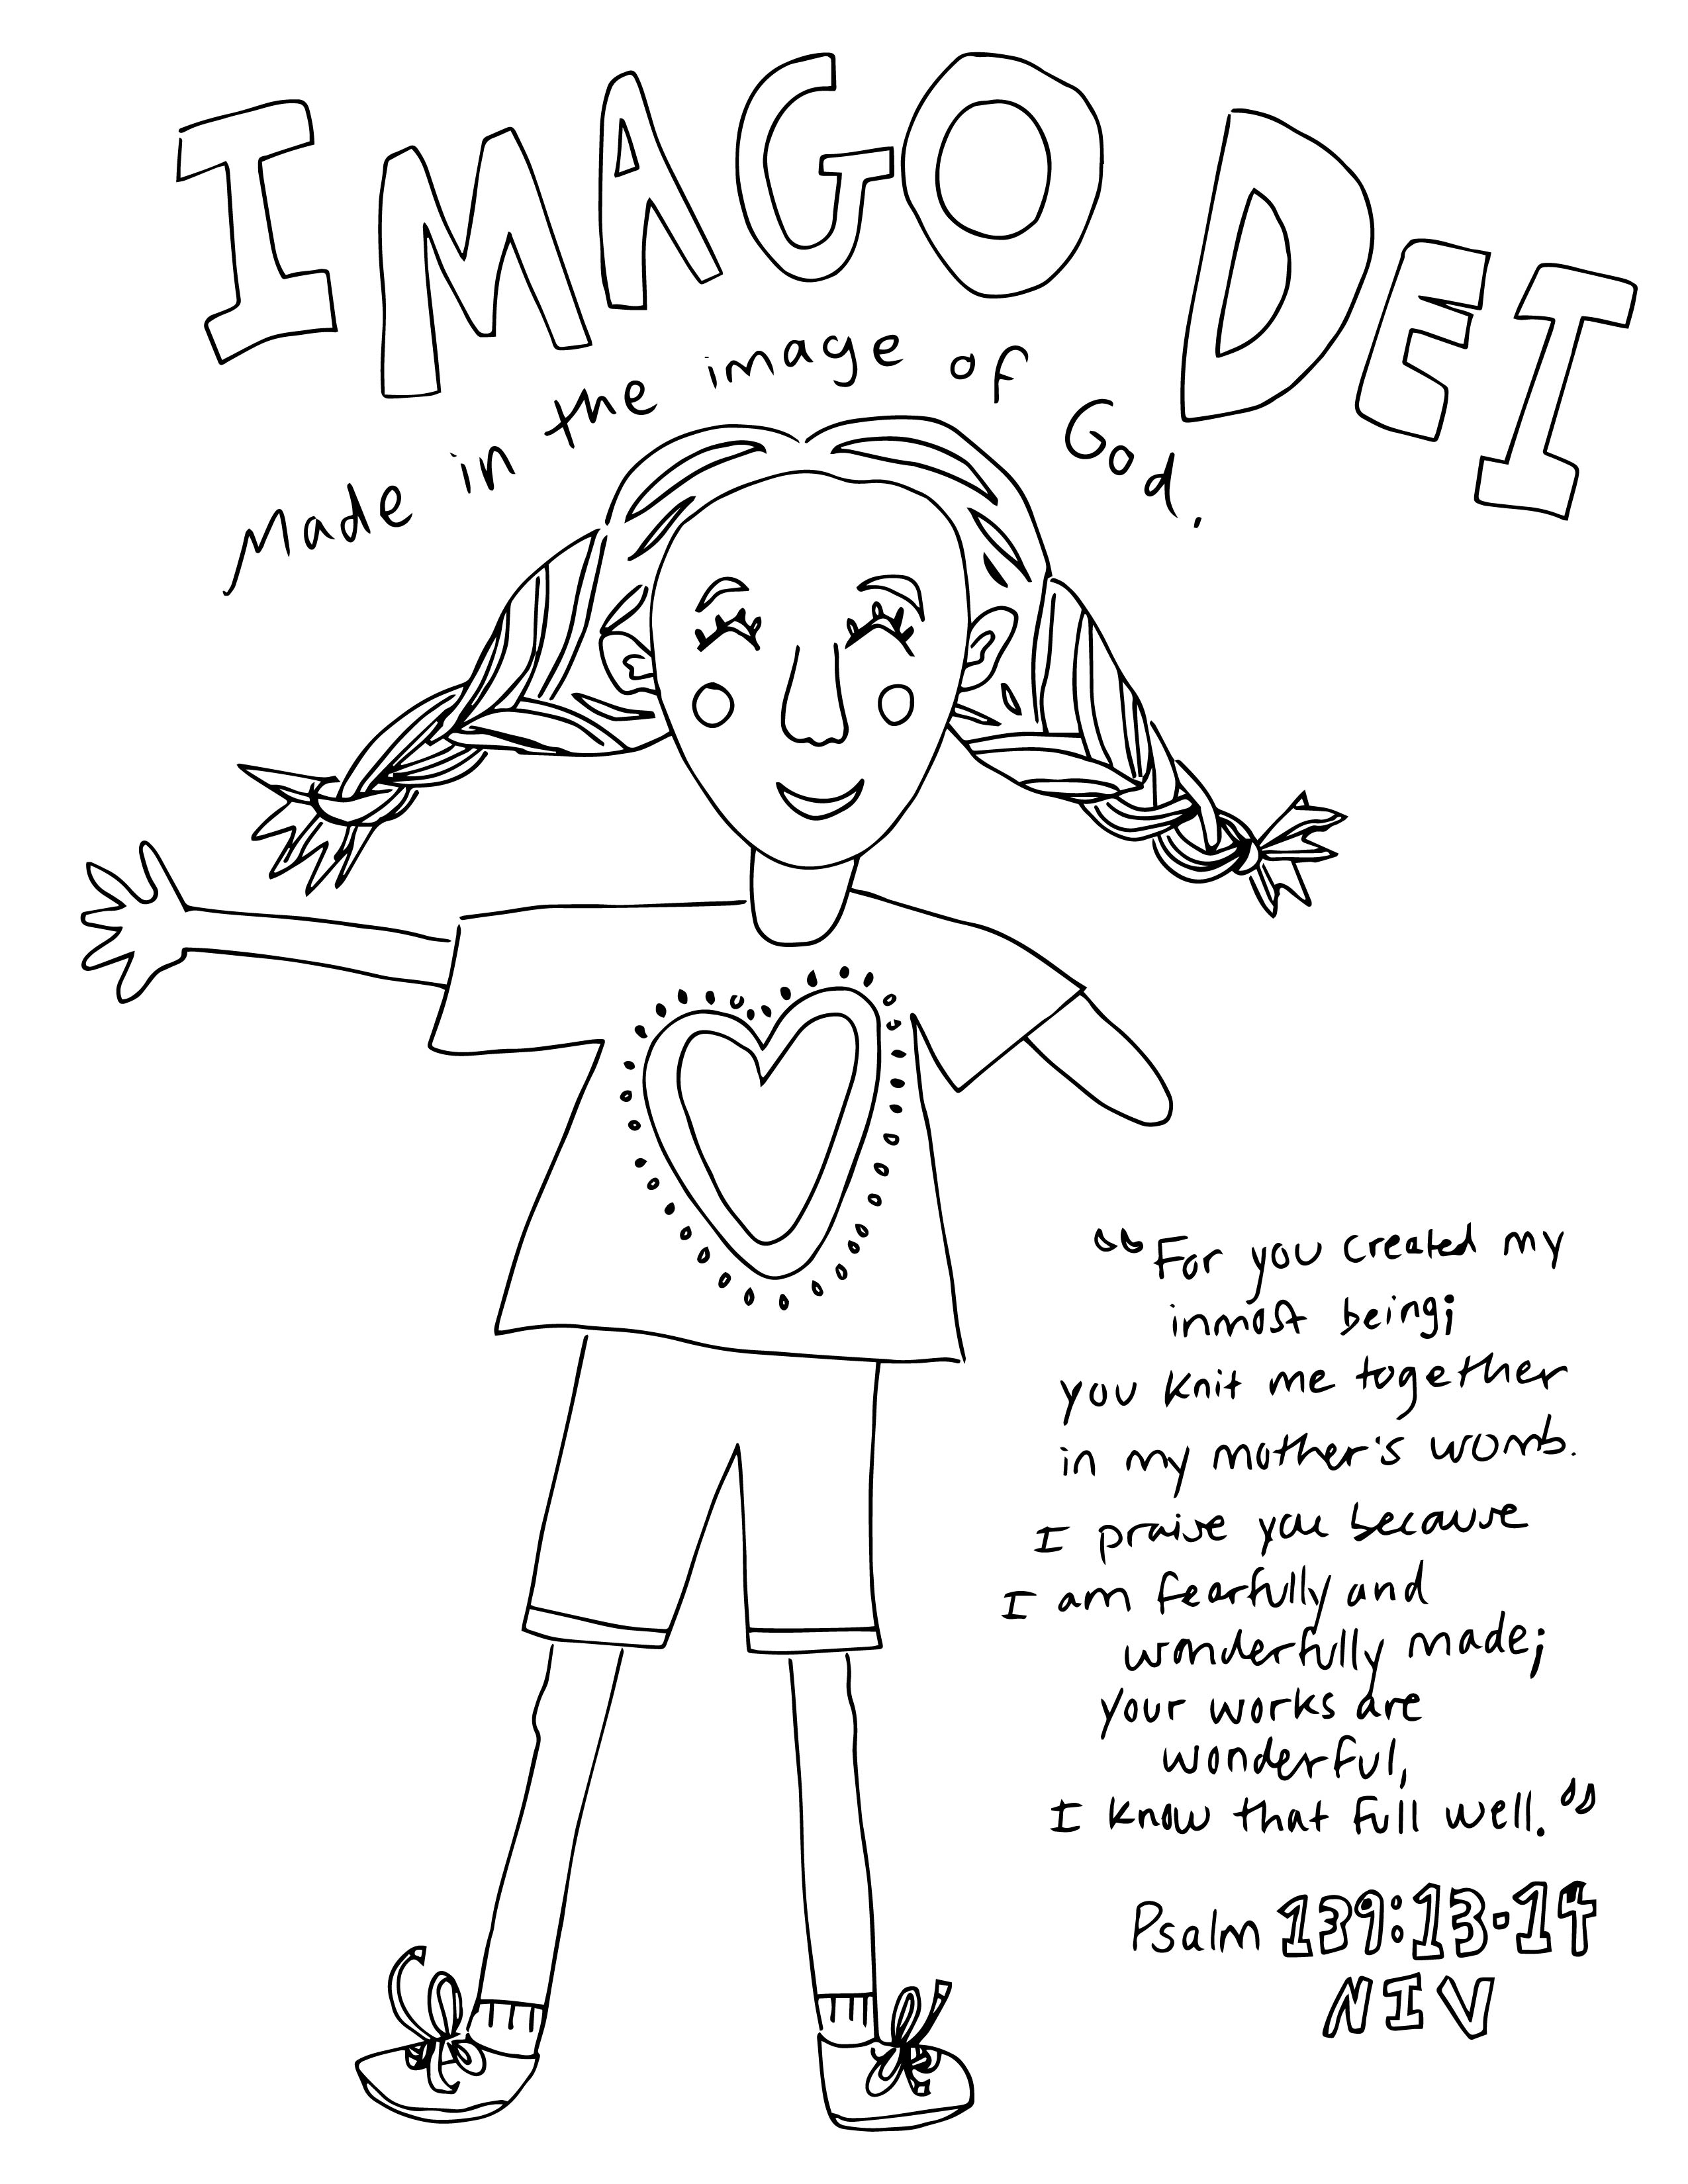 IMAGO DEI
Made in the image of God.
“For you created my
inmost being;
you knit me together
in my mother's womb.
I praise you because
I am fearfully and
wonderfully made;
your works are
wonderful,
I know that full well.”
Psalm 139:13-14
NIV